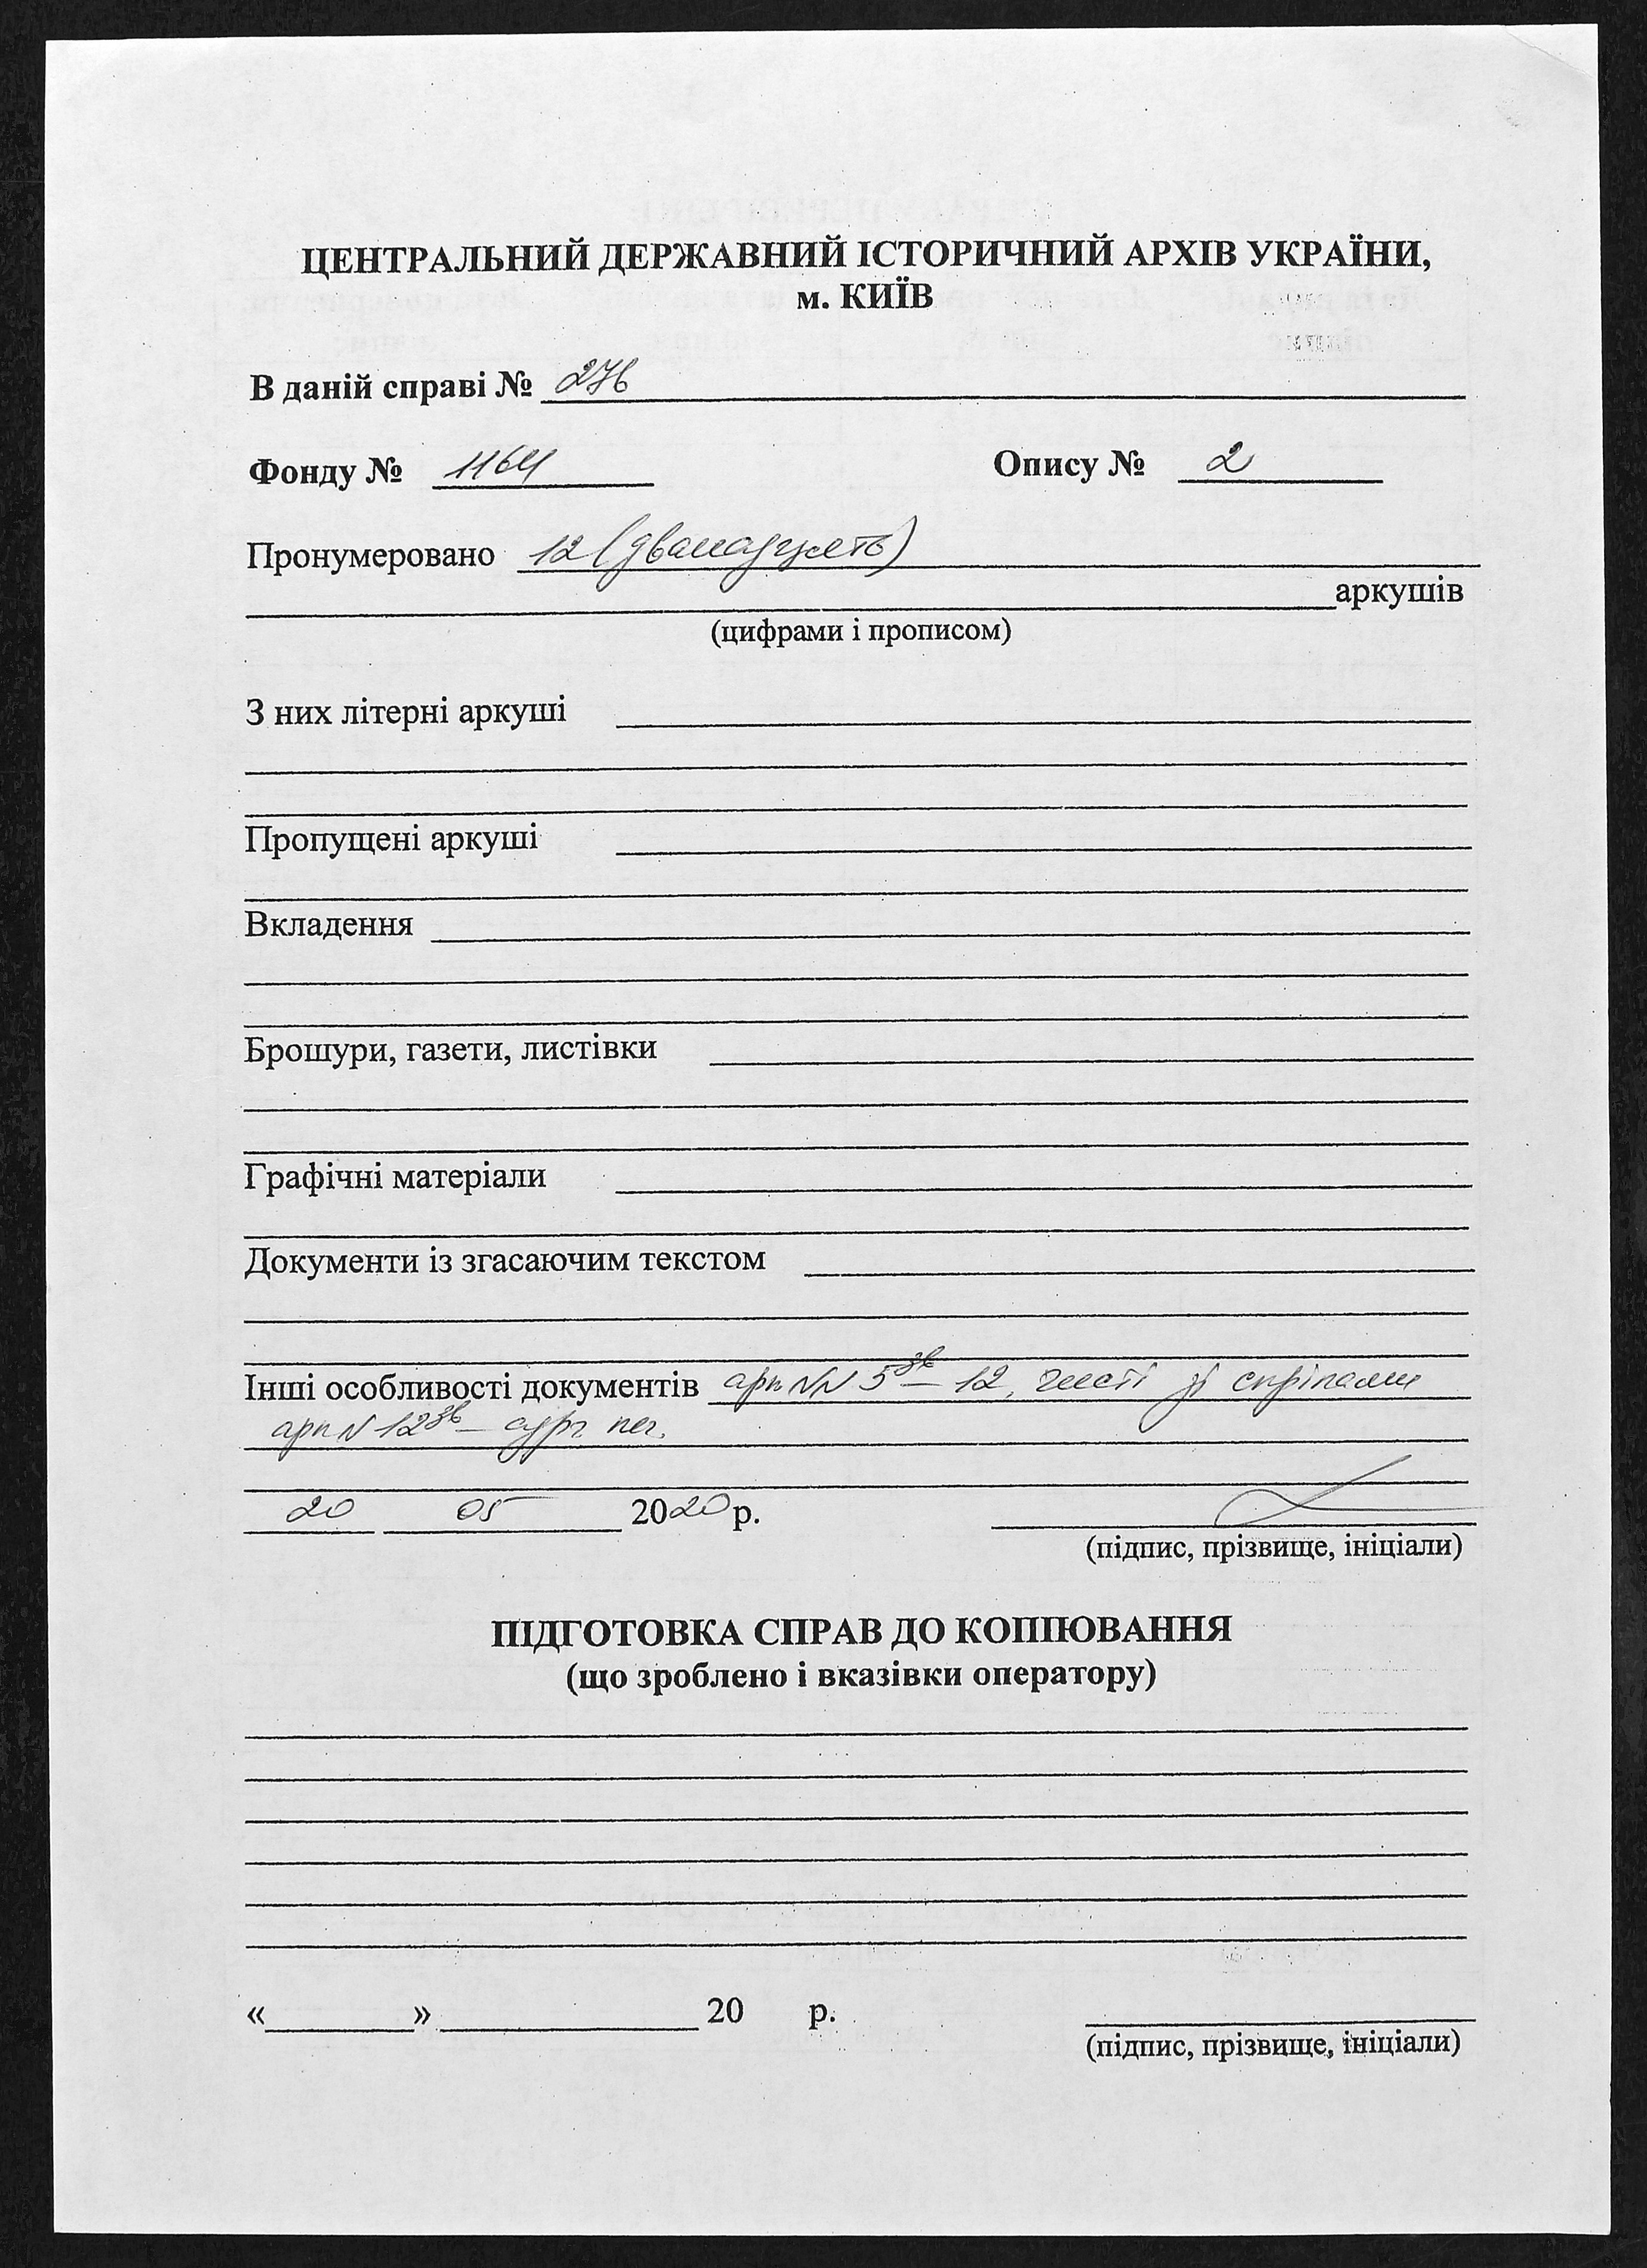 ЦЕНТРАЛЬНИЙ ДЕРЖАВНИЙ ІСТОРИЧНИЙ АРХІВ УКРАЇНИ,
м. КИЇВ
В даній справі № 276
Фонду № 1164 Опису № 2
Пронумеровано 12 (дванадцять)
аркушів
(цифрами і прописом)
З них літерні аркуші
Пропущені аркуші
Вкладення
Брошури, газети, листівки
Графічні матеріали
Документи із згасаючим текстом
Інші особливості документів арк NN 5зв – 12, чисті зі скріпами
арк N 12зв – сург. печ.
20 05 2020 р.
(підпис, прізвище, ініціали)
ПІДГОТОВКА СПРАВ ДО КОПІЮВАННЯ
(що зроблено і вказівки оператору)
« » 20 р.
(підпис, прізвище, ініціали)